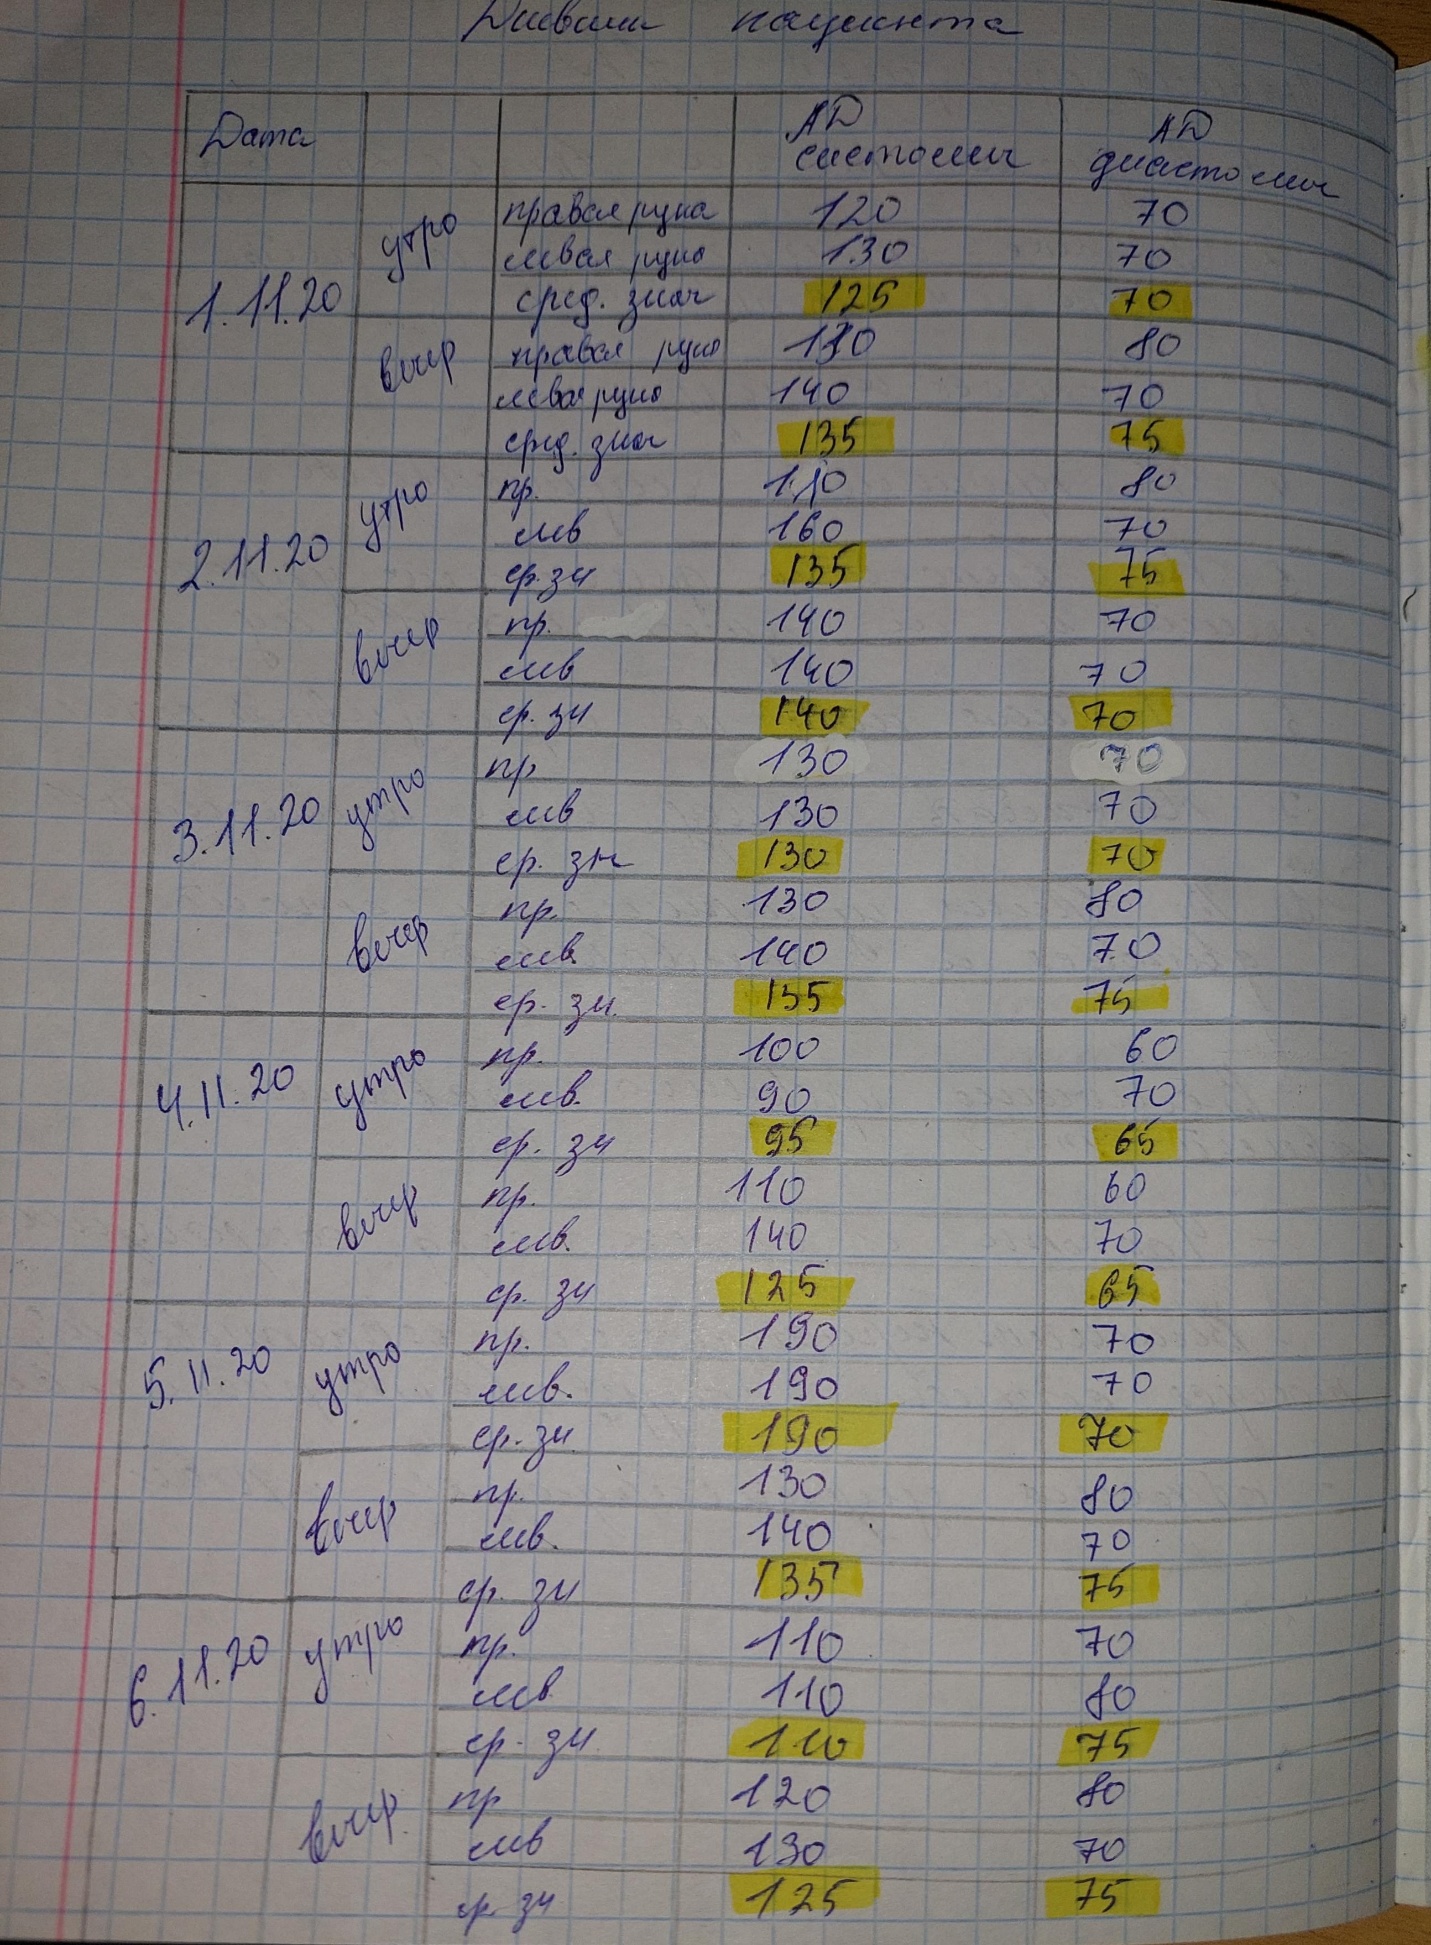 Дневник пациента
Дата АД систолич АД диастолич
1.11.20 утро правая рука 120 70
левая рука 130 70
сред. знач 125 70
вечер правая рука 130 80
левая рука 140 70
сред. знач 135 75
2.11.20 утро пр. 110 80
лев 160 70
ср. зн 135 75
вечер пр. 140 70
лев 140 70
ср. зн 140 70
3.11.20 утро пр 130 70
лев 130 70
ср. зн 130 70
вечер пр. 130 80
лев. 140 70
ср. зн. 135 75
4.11.20 утро пр. 100 60
лев. 90 70
ср. зн 95 65
вечер пр. 110 60
лев. 140 70
ср. зн 125 65
5.11.20 утро пр. 190 70
лев. 190 70
ср. зн. 190 70
вечер пр. 130 80
лев. 140 70
ср. зн 135 75
6.11.20 утро пр. 110 70
лев. 110 80
ср. зн. 110 75
вечер пр 120 80
лев 130 70
ср зн 125 75